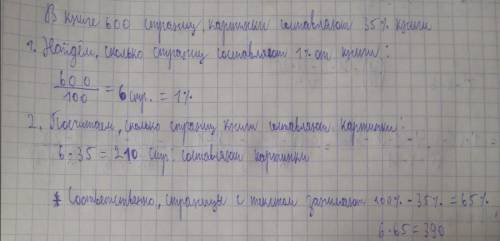 В книге 600 страниц, картинки составляют 35% книги
1. Найдём, сколько страниц составляет 1% от книги:
600/100 = 6 стр. = 1%
2. Посчитаем, сколько страниц книги составляют картинки:
6 · 35 = 210 стр. составляют картинки
* Соответственно, страницы с текстом занимают 100% - 35% = 65%
6 · 65 = 390